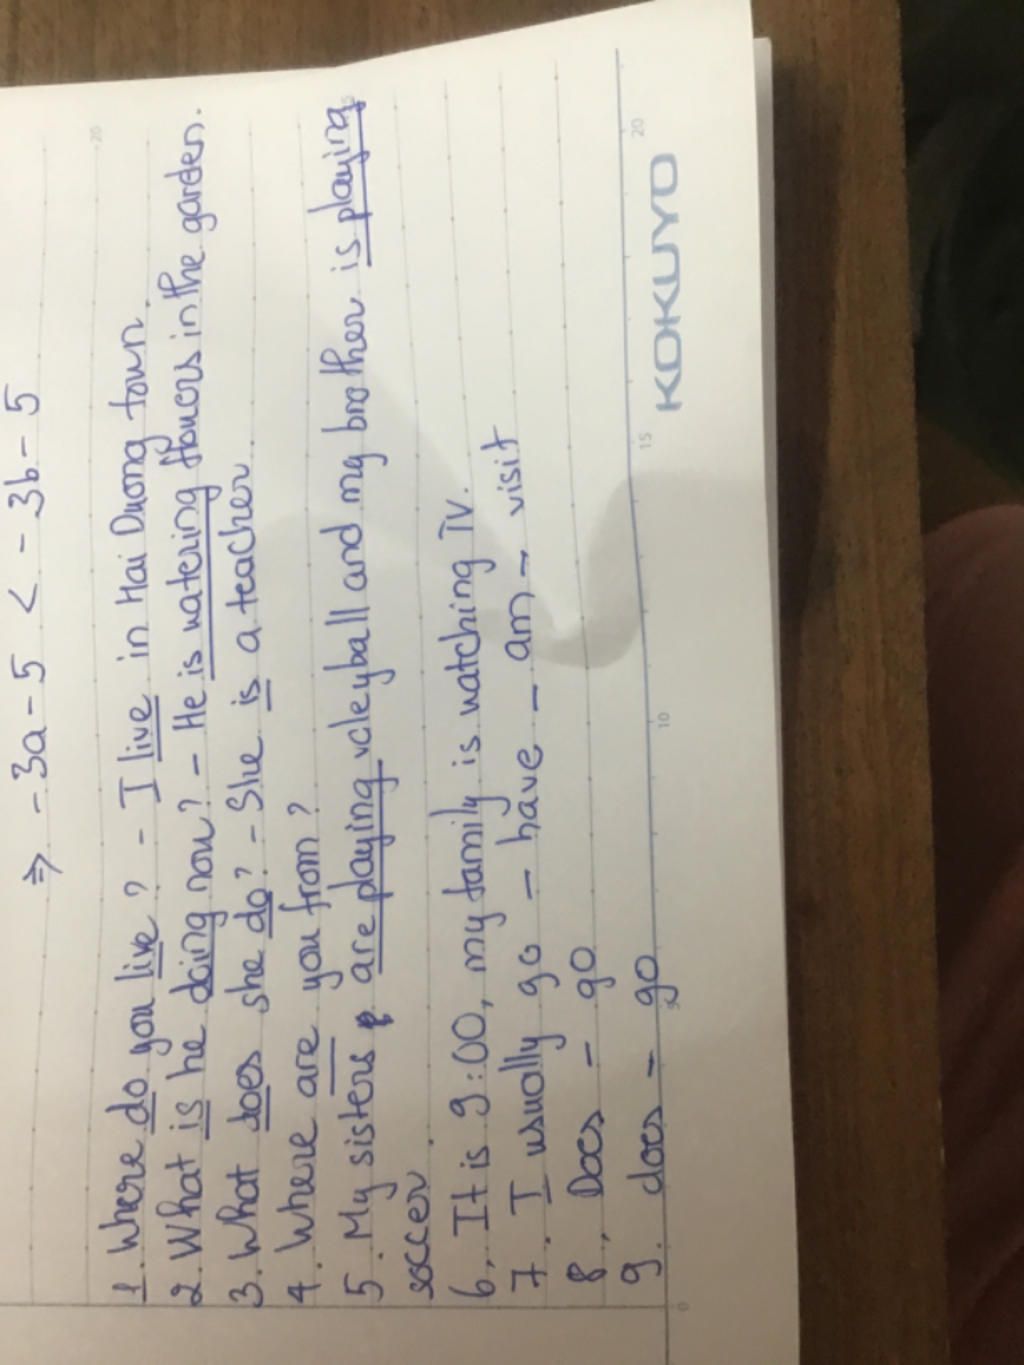 ⇒ -3a-5 < -3b-5
1. Where do you live? - I live in Hai Duong town.
2. What is he doing now? - He is watering flowers in the garden.
3. What does she do? - She is a teacher.
4. Where are you from?
5. My sisters are playing voleyball and my brother is playing
soccer.
6. It is 9:00, my family is watching TV.
7. I usually go - have - am - visit
8. Does - go
9. does - go
0 5 10 15 20
KOKUYO